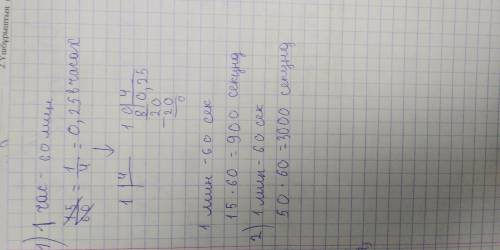 1) 1 час - 60 мин
15/60 = 1/4 = 0,25 в часах
1 | 4
10 | 4
8 | 0,25
20
- 20
0
1 мин - 60 сек
15 · 60 = 900 секунд
2) 1 мин - 60 сек
50 · 60 = 3000 секунд